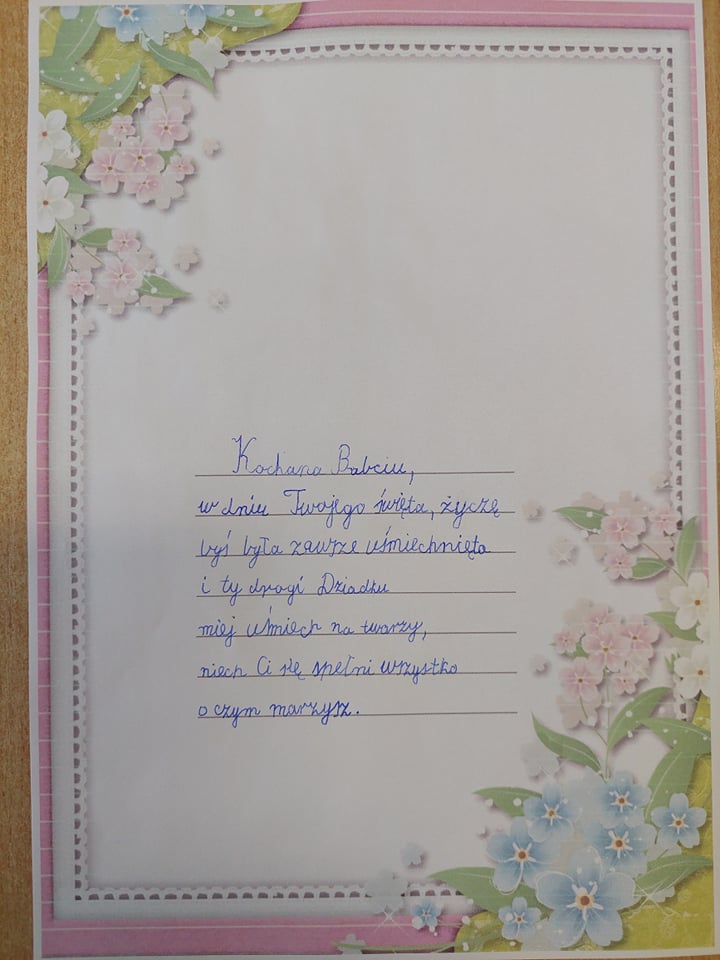 Kochana Babciu,
w dniu Twojego święta, życzę
byś była zawsze uśmiechnięta
i ty drogi Dziadku
miej uśmiech na twarzy,
niech Ci się spełni wszystko
o czym marzysz.